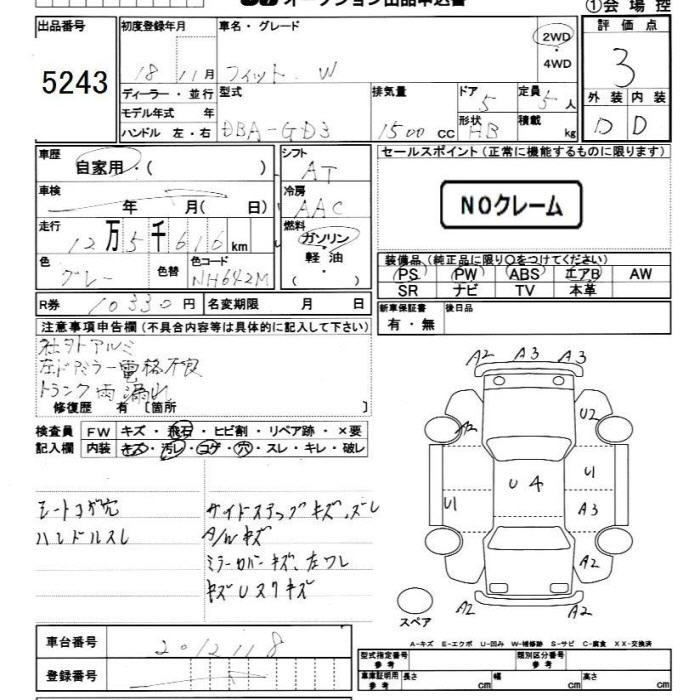 オークション出品申込書
①会場控
出品番号
5243
初度登録年月
18 11月
車名・グレード
フィット. W
2WD
・
4WD
評価点
3
外装 内装
D D
ディーラー・並行
モデル年式 年
ハンドル 左・右
型式
DBA-GD3
排気量
1500 cc
ドア
5
形状
HB
定員
5人
積載
kg
車歴
自家用・( )
シフト
AT
車検
年 月( 日)
冷房
AAC
走行
12万5千616km
燃料
ガソリン・
軽油・
( )
色
グレー
色替
色コード
NH642M
R券 10330円
名変期限 月 日
セールスポイント(正常に機能するものに限ります)
NOクレーム
装備品(純正品に限り○をつけてください)
PS PW ABS エアB AW
SR ナビ TV 本革
新車保証書
有・無
後日品
注意事項申告欄(不具合内容等は具体的に記入して下さい)
社外アルミ
左ドアミラー電格不良
トランク雨漏れ
修復歴 有 〔箇所 〕
検査員
記入欄
FW キズ・飛石・ヒビ割・リペア跡・×要
内装 キズ・汚レ・コゲ・穴・スレ・キレ・破レ
シートコゲ穴
ハンドルスレ
サイドステップキズ、ズレ
A/Wキズ
ミラーカバーキズ、左ワレ
キズUスリキズ
A2 A3 A3
A2 U2
U1 U4 U1
A3
A2 A2
A2 A2
スペア
A-キズ E-エクボ U-凹み W-補修跡 S-サビ C-腐食 XX-交換済
車台番号
2012118
登録番号
型式指定番号
参考
類別区分番号
参考
車庫証明用
参考
長さ cm
幅 cm
高さ cm